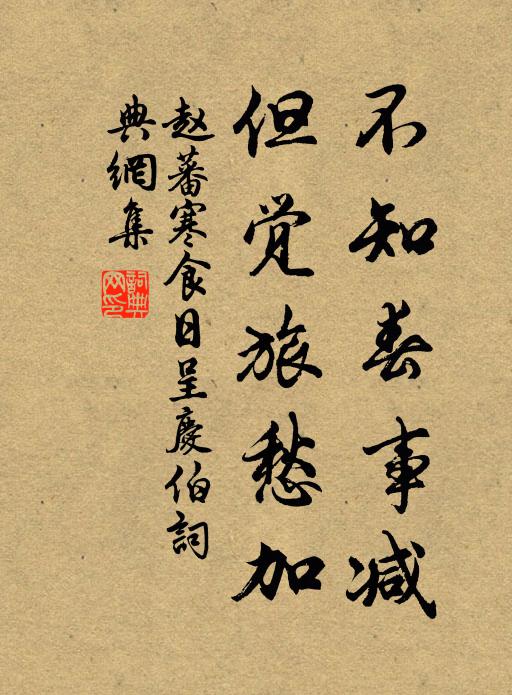 不知春事减
但觉旅愁加
赵蕃寒食日呈慶伯詞
典網集
詞典网印